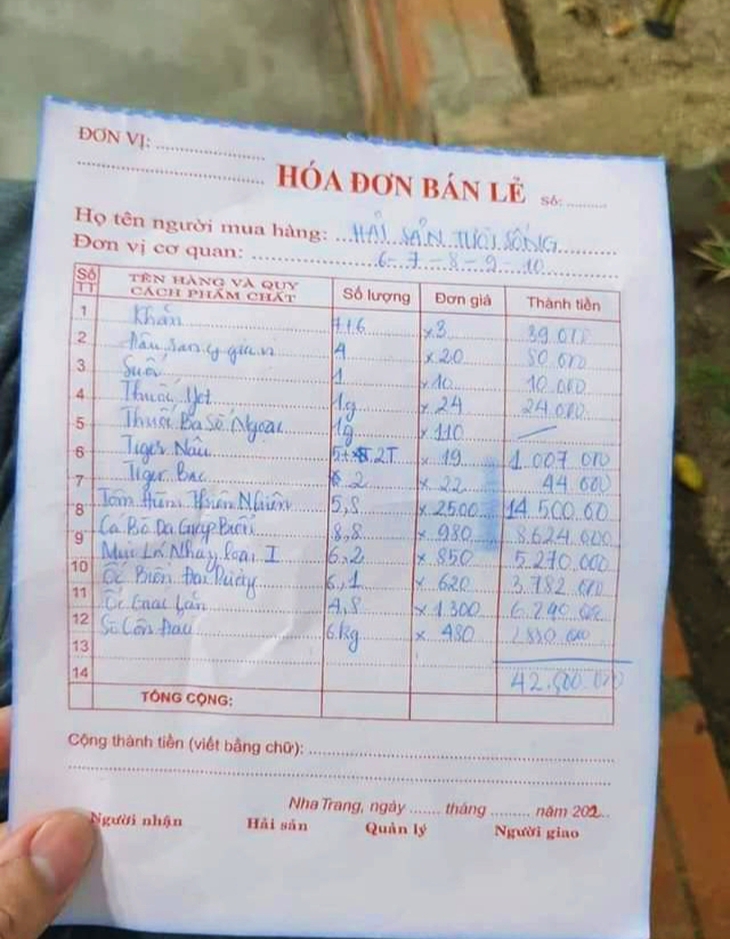 ĐƠN VỊ: ........................
HÓA ĐƠN BÁN LẺ Số: ........
Họ tên người mua hàng: HẢI SẢN TƯƠI SỐNG
Đơn vị cơ quan: 6-7-8-9-10
Số TT TÊN HÀNG VÀ QUY CÁCH PHẨM CHẤT Số lượng Đơn giá Thành tiền
1 Khăn 7+6 x3 39.000
2 4 x20 80.000
3 Suối 1 x10 10.000
4 Thuốc 1g x24 24.000
5 Thuốc Ba Số Ngoại 1g x110
6 Tiger Nâu 2T x19 1.007.000
7 Tiger Bạc 2 x22 44.000
8 Tôm Hùm Thiên Nhiên 5,8 x2500 14.500.00
9 Cá Bò Da Giáp Biển 8,8 x980 8.624.000
Mực Lá Nháy loại I 6,2 x850 5.270.000
10 Ốc Biển 6,1 x620 3.782.000
11 Ốc Lớn 4,8 x1300 6.240.000
12 Sò Côn Đảo 6kg x480 2.880.000
13
14 42.500.000
TỔNG CỘNG:
Cộng thành tiền (viết bằng chữ): ........................
Nha Trang, ngày ....... tháng ......... năm 202...
Người nhận Hải sản Quản lý Người giao